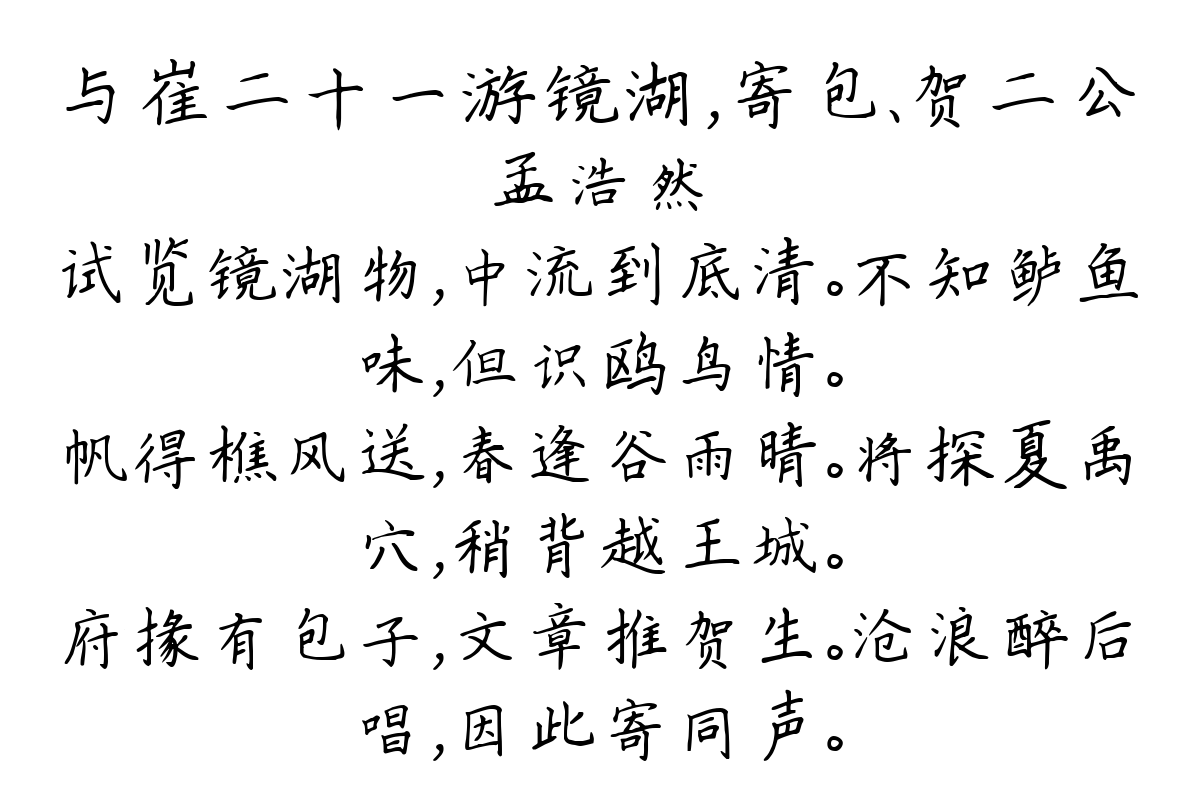 与崔二十一游镜湖,寄包、贺二公
孟浩然
试览镜湖物,中流到底清。不知鲈鱼
味,但识鸥鸟情。
帆得樵风送,春逢谷雨晴。将探夏禹
穴,稍背越王城。
府掾有包子,文章推贺生。沧浪醉后
唱,因此寄同声。